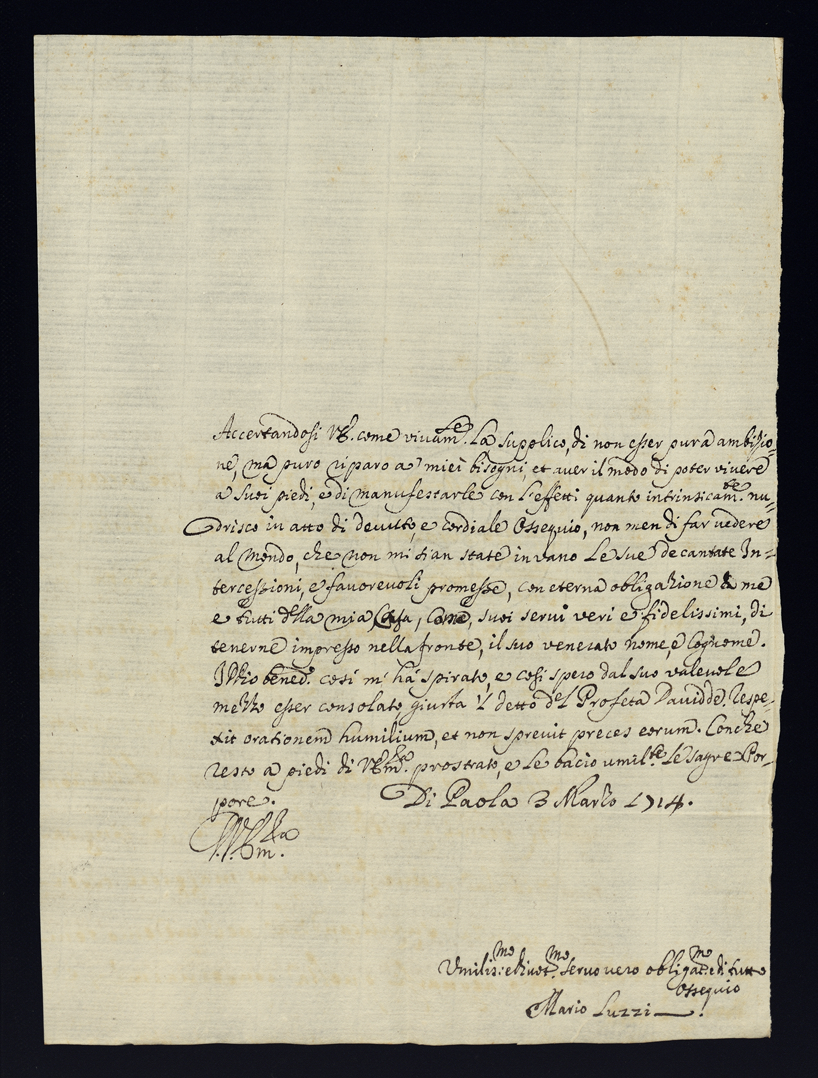 Accertandosi VE. come vivam.te La supplico, di non esser pura ambizio=
ne, ma puro riparo a' miei bisogni, et aver il modo di poter vivere
a suoi piedi, e di manufestarle con l'effetti quanto intrinsicam.te nu=
drisco in atto di devoto, e cordiale Ossequio, non men di far vedere
al mondo, che non mi sian state in vano Le sue decantate In=
tercessioni, e favorevoli promesse, con eterna obligazione & me
e tutti della mia Casa, Come, suoi servi veri e fidelissimi, di
tenerne impresso nella fronte, il suo venerato nome, e Cognome.
Iddio bened.o così m' há spirato, e così spero dal suo valevole
mezzo esser consolato giusta 'l detto del Profeta Davidde, Respe=
xit orationem humilium, et non sprevit preces eorum. Conche
resto a piedi di VEm.za prostrato, e Le bacio umil.te Le sagre Por=
pore.
Di Paola 3 Marzo 1714.
Umilis.mo e divot.mo servo vero obligat.mo e di tutto
Ossequio
Mario Luzzi